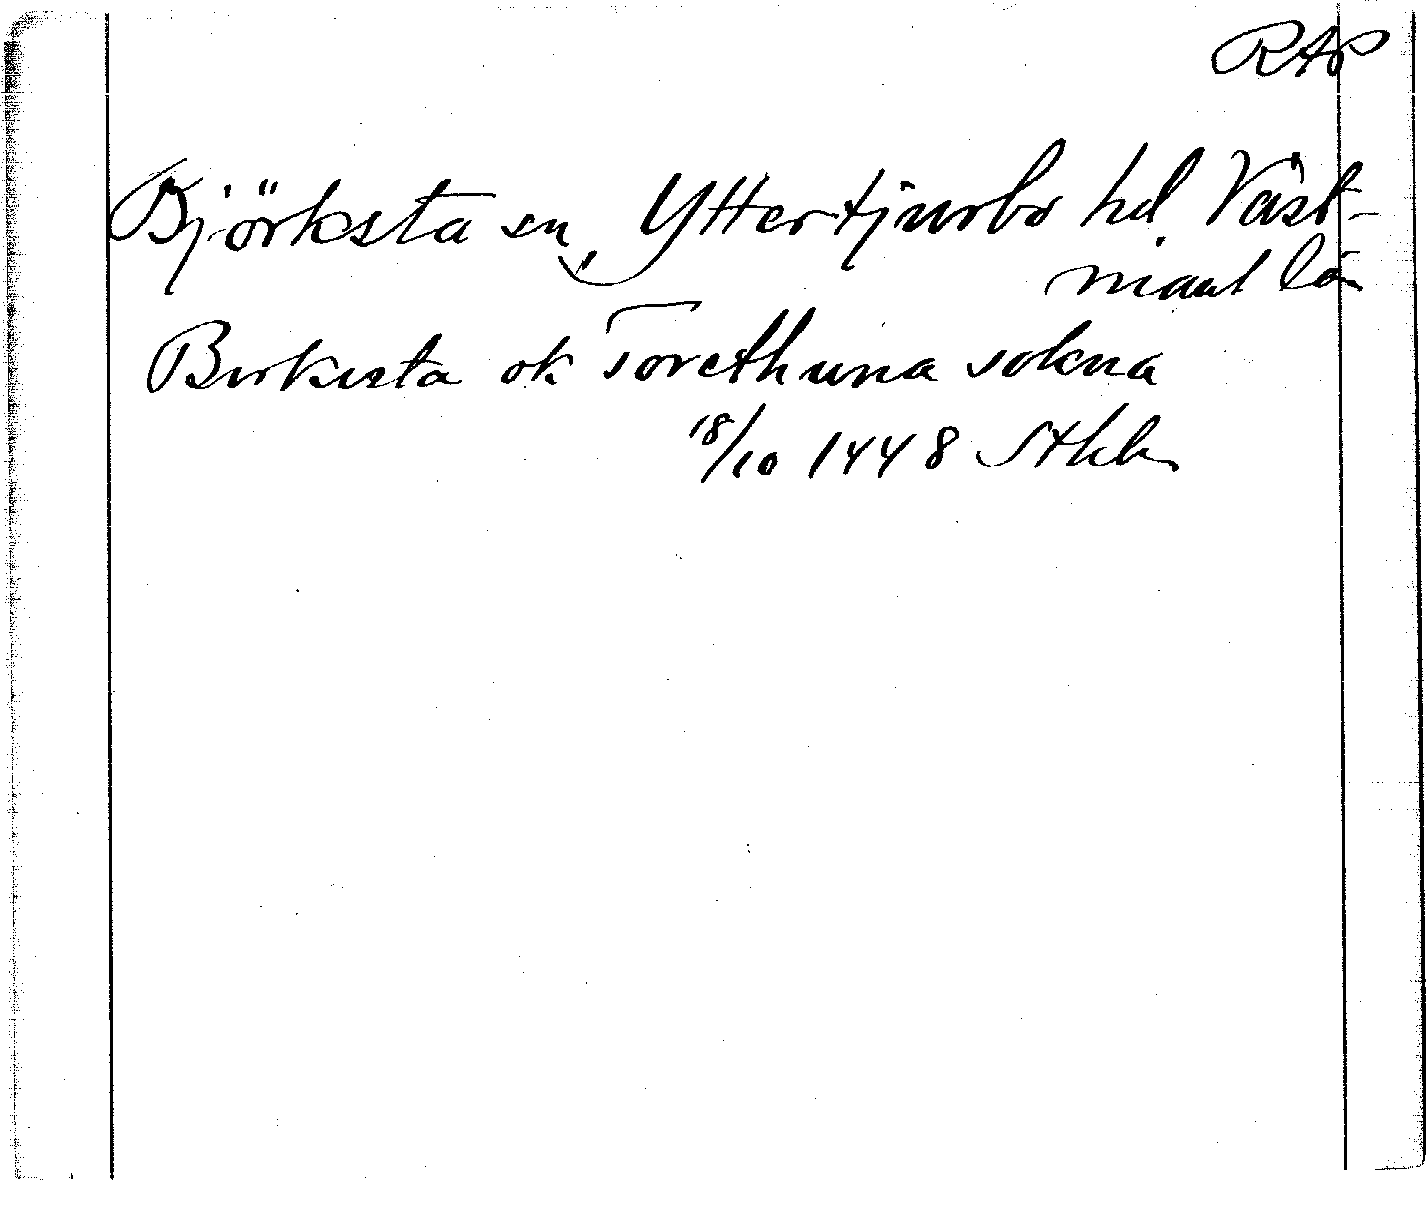 RAP
Björksta sn, Yttertjurbo hd. Väst-
manl län
Birkista ok Torethuna sokna
18/10 1448 Sthlm